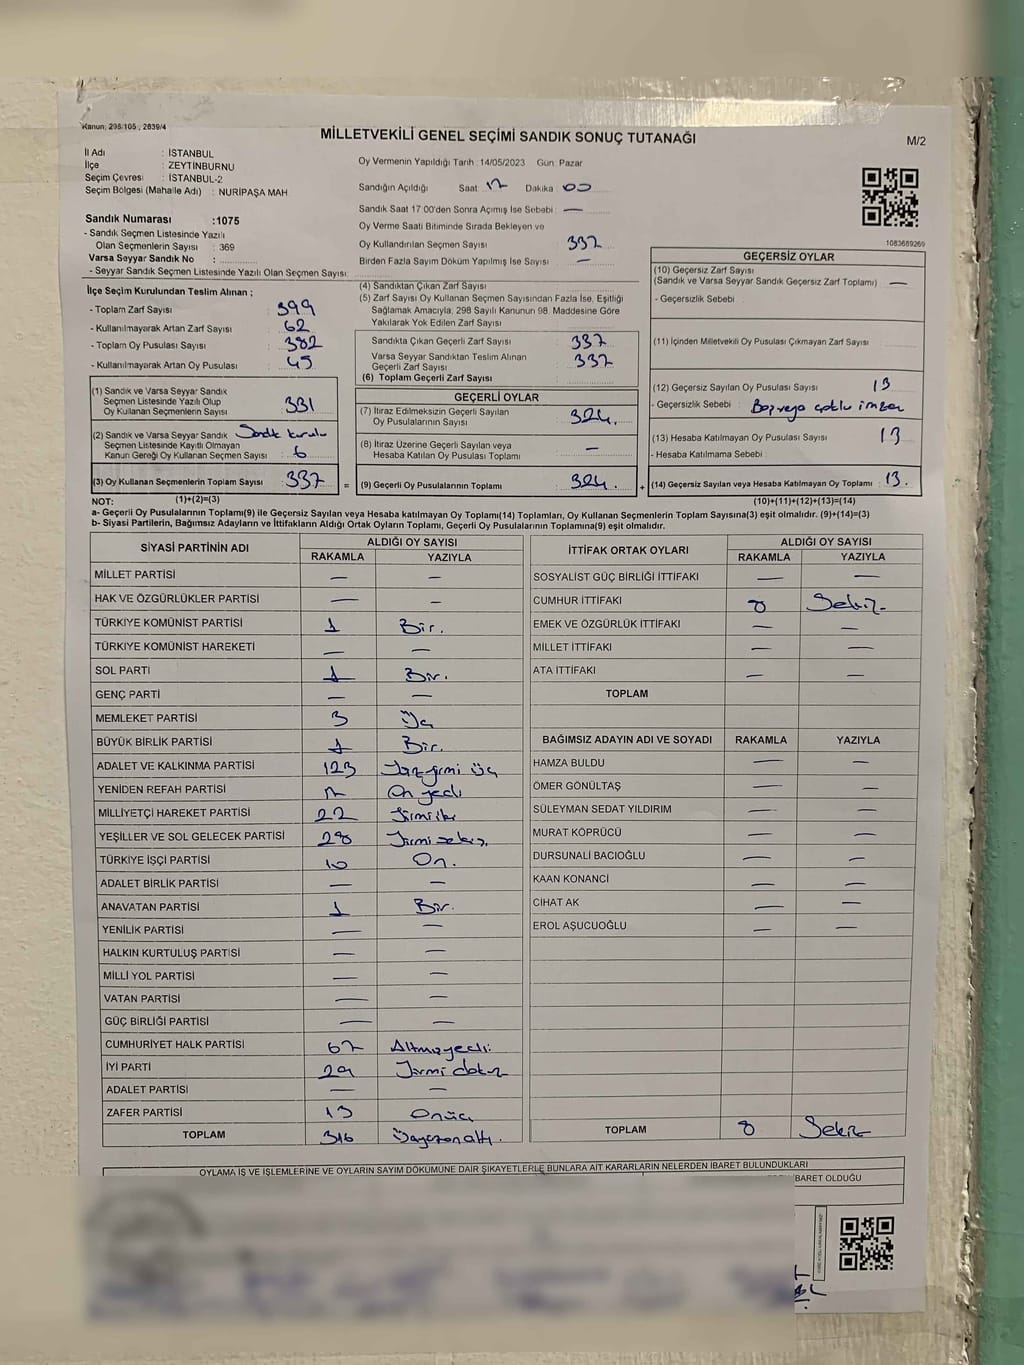 Kanun; 298/105 , 2839/4
MİLLETVEKİLİ GENEL SEÇİMİ SANDIK SONUÇ TUTANAĞI
M/2
İl Adı : İSTANBUL
İlçe : ZEYTİNBURNU
Seçim Çevresi : İSTANBUL-2
Seçim Bölgesi (Mahalle Adı) : NURİPAŞA MAH
Sandık Numarası :1075
- Sandık Seçmen Listesinde Yazılı
Olan Seçmenlerin Sayısı : 369
Varsa Seyyar Sandık No :
- Seyyar Sandık Seçmen Listesinde Yazılı Olan Seçmen Sayısı:
Oy Vermenin Yapıldığı Tarih :14/05/2023 Gün: Pazar
Sandığın Açıldığı Saat 17 Dakika 00
Sandık Saat 17:00'den Sonra Açımış İse Sebebi : —
Oy Verme Saati Bitiminde Sırada Bekleyen ve
Oy Kullandırılan Seçmen Sayısı 337
Birden Fazla Sayım Döküm Yapılmış İse Sayısı : —
1083689269
İlçe Seçim Kurulundan Teslim Alınan ;
- Toplam Zarf Sayısı : 399
- Kullanılmayarak Artan Zarf Sayısı : 62
- Toplam Oy Pusulası Sayısı : 382
- Kullanılmayarak Artan Oy Pusulası : 45
(1) Sandık ve Varsa Seyyar Sandık
Seçmen Listesinde Yazılı Olup
Oy Kullanan Seçmenlerin Sayısı : 331
(2) Sandık ve Varsa Seyyar Sandık Sandık kurulu
Seçmen Listesinde Kayıtlı Olmayan
Kanun Gereği Oy Kullanan Seçmen Sayısı : 6
(3) Oy Kullanan Seçmenlerin Toplam Sayısı : 337 =
(4) Sandıktan Çıkan Zarf Sayısı
(5) Zarf Sayısı Oy Kullanan Seçmen Sayısından Fazla İse, Eşitliği
Sağlamak Amacıyla, 298 Sayılı Kanunun 98. Maddesine Göre
Yakılarak Yok Edilen Zarf Sayısı
Sandıkta Çıkan Geçerli Zarf Sayısı : 337
Varsa Seyyar Sandıktan Teslim Alınan
Geçerli Zarf Sayısı : 337
(6) Toplam Geçerli Zarf Sayısı
GEÇERLİ OYLAR
(7) İtiraz Edilmeksizin Geçerli Sayılan
Oy Pusulalarının Sayısı : 324.
(8) İtiraz Üzerine Geçerli Sayılan veya
Hesaba Katılan Oy Pusulası Toplamı : —
(9) Geçerli Oy Pusulalarının Toplamı : 324. +
GEÇERSİZ OYLAR
(10) Geçersiz Zarf Sayısı
(Sandık ve Varsa Seyyar Sandık Geçersiz Zarf Toplamı) : —
- Geçersizlik Sebebi
(11) İçinden Milletvekili Oy Pusulası Çıkmayan Zarf Sayısı
(12) Geçersiz Sayılan Oy Pusulası Sayısı : 13
- Geçersizlik Sebebi : Boş veya çoklu
(13) Hesaba Katılmayan Oy Pusulası Sayısı : 13
- Hesaba Katılmama Sebebi
(14) Geçersiz Sayılan veya Hesaba Katılmayan Oy Toplamı : 13.
NOT: (1)+(2)=(3) (10)+(11)+(12)+(13)=(14)
a- Geçerli Oy Pusulalarının Toplamı(9) ile Geçersiz Sayılan veya Hesaba katılmayan Oy Toplamı(14) Toplamları, Oy Kullanan Seçmenlerin Toplam Sayısına(3) eşit olmalıdır. (9)+(14)=(3)
b- Siyasi Partilerin, Bağımsız Adayların ve İttifakların Aldığı Ortak Oyların Toplamı, Geçerli Oy Pusulalarının Toplamına(9) eşit olmalıdır.
SİYASİ PARTİNİN ADI ALDIĞI OY SAYISI
RAKAMLA YAZIYLA
MİLLET PARTİSİ — —
HAK VE ÖZGÜRLÜKLER PARTİSİ — —
TÜRKİYE KOMÜNİST PARTİSİ 1 Bir.
TÜRKİYE KOMÜNİST HAREKETİ — —
SOL PARTİ 1 Bir.
GENÇ PARTİ — —
MEMLEKET PARTİSİ 3 Üç
BÜYÜK BİRLİK PARTİSİ 1 Bir.
ADALET VE KALKINMA PARTİSİ 123 Yüzyirmi üç
YENİDEN REFAH PARTİSİ 17 On yedi
MİLLİYETÇİ HAREKET PARTİSİ 22 Yirmi iki
YEŞİLLER VE SOL GELECEK PARTİSİ 28 Yirmi sekiz.
TÜRKİYE İŞÇİ PARTİSİ 10 On.
ADALET BİRLİK PARTİSİ — —
ANAVATAN PARTİSİ 1 Bir.
YENİLİK PARTİSİ — —
HALKIN KURTULUŞ PARTİSİ — —
MİLLİ YOL PARTİSİ — —
VATAN PARTİSİ — —
GÜÇ BİRLİĞİ PARTİSİ — —
CUMHURİYET HALK PARTİSİ 67 Altmışyedi
İYİ PARTİ 29 Yirmi dokuz
ADALET PARTİSİ — —
ZAFER PARTİSİ 13 Onüç
TOPLAM 316 Üçyüzonaltı.
İTTİFAK ORTAK OYLARI ALDIĞI OY SAYISI
RAKAMLA YAZIYLA
SOSYALİST GÜÇ BİRLİĞİ İTTİFAKI — —
CUMHUR İTTİFAKI 8 Sekiz
EMEK VE ÖZGÜRLÜK İTTİFAKI — —
MİLLET İTTİFAKI — —
ATA İTTİFAKI — —
TOPLAM
BAĞIMSIZ ADAYIN ADI VE SOYADI RAKAMLA YAZIYLA
HAMZA BULDU — —
ÖMER GÖNÜLTAŞ — —
SÜLEYMAN SEDAT YILDIRIM — —
MURAT KÖPRÜCÜ — —
DURSUNALİ BACIOĞLU — —
KAAN KONANCİ — —
CİHAT AK — —
EROL AŞUCUOĞLU — —
TOPLAM 8 Sekiz
OYLAMA İŞ VE İŞLEMLERİNE VE OYLARIN SAYIM DÖKÜMÜNE DAİR ŞİKAYETLERLE BUNLARA AİT KARARLARIN NELERDEN İBARET BULUNDUKLARI
BARET OLDUĞU